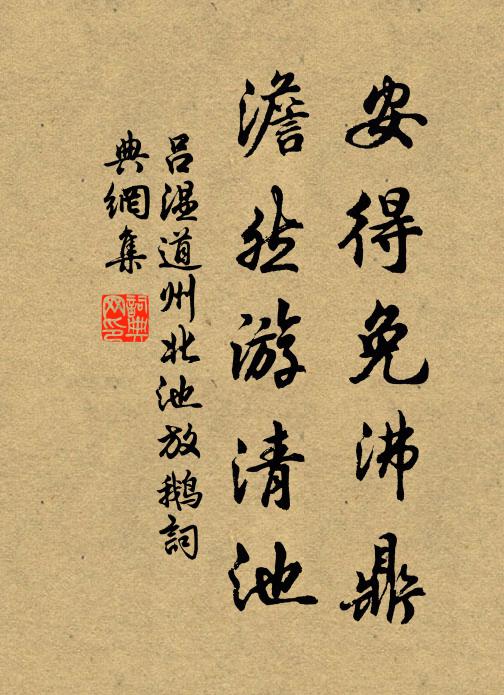 安得免沸鼎
澹然游清池
吕温道州北池放鹅词
典網集
詞典網印